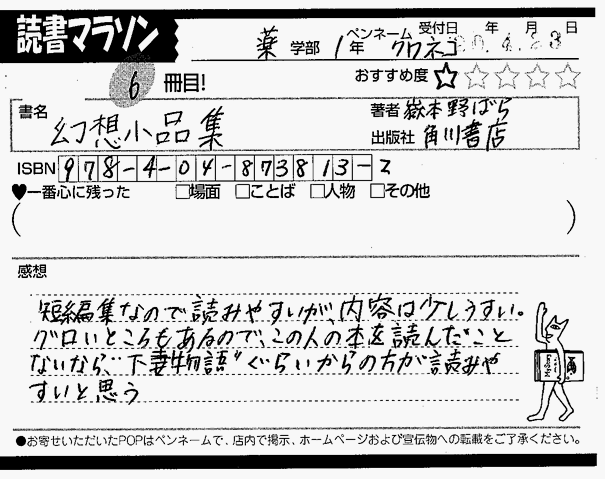 読書マラソン
薬 学部 1年 ペンネーム クロネコ 受付日 年 月 日
6 冊目! おすすめ度 ★☆☆☆☆
書名 幻想小品集 著者 嶽本野ばら
出版社 角川書店
ISBN 978-4-04-873813-2
♥一番心に残った □場面 □ことば □人物 □その他
( )
感想
短編集なので読みやすいが、内容は少しうすい。
グロいところもあるので、この人の本を読んだこと
ないなら、"下妻物語"ぐらいからの方が読みや
すいと思う
●お寄せいただいたPOPはペンネームで、店内で掲示、ホームページおよび宣伝物への転載をご了承ください。